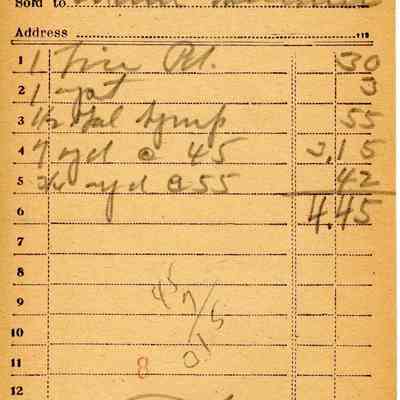 Sold to
Address
1 1 Pt. 30
2 1 3
3 1/2 Gal Syrup 55
4 7 yd @ 45 3.15
5 3/4 yd @ 55 42
6 4.45
7
8
45
9 7
315
10
11 8
12